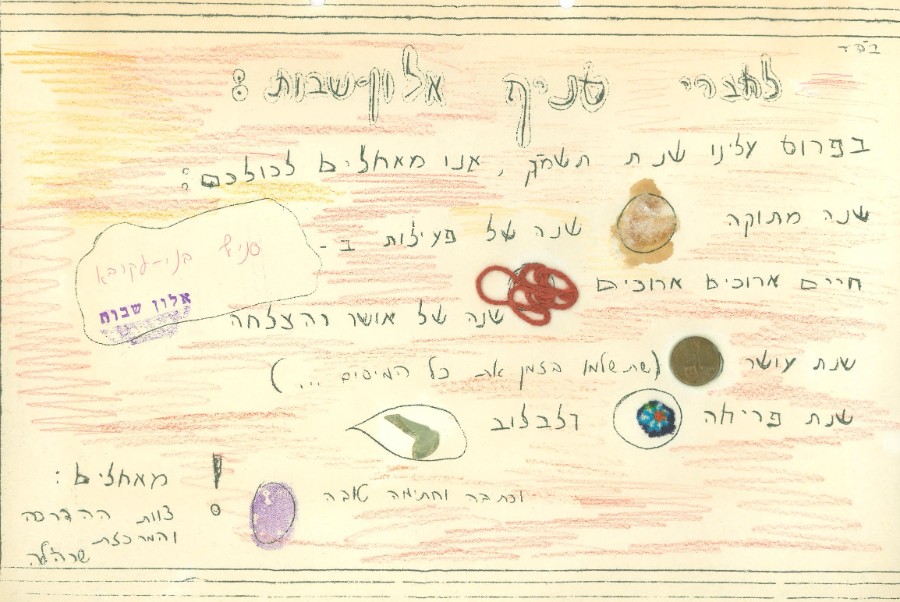 בס"ד
לחברי סניף אלון-שבות:
בפרוס עלינו שנת תשמ"ק, אנו מאחלים לכולכם:
שנה מתוקה
שנה של פעילות ב-
סניף בני-עקיבא
אלון שבות
חיים ארוכים ארוכים
שנה של אושר והצלחה
שנת עושר (שתשלמו בזמן את כל המיסים ...)
שנת פריחה ולבלוב
וכתבה וחתימה טובה !
מאחלים:
צוות ההדרכה
והמרכזת
שרה'לה